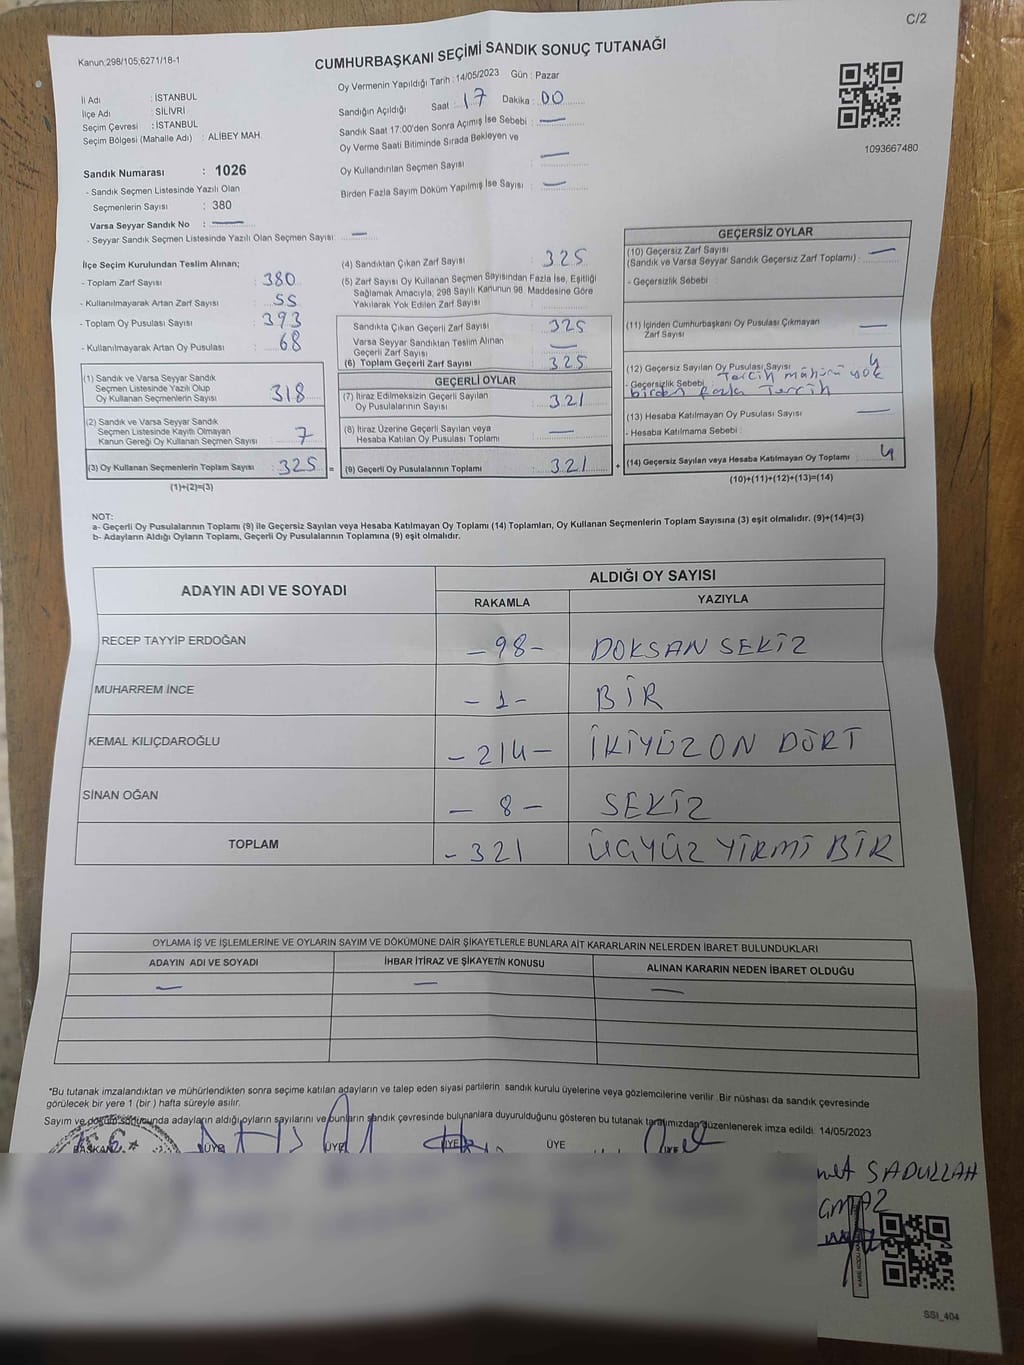 C/2
Kanun:298/105;6271/18-1
CUMHURBAŞKANI SEÇİMİ SANDIK SONUÇ TUTANAĞI
İl Adı : İSTANBUL
İlçe Adı : SİLİVRİ
Seçim Çevresi : İSTANBUL
Seçim Bölgesi (Mahalle Adı) : ALİBEY MAH.
Oy Vermenin Yapıldığı Tarih : 14/05/2023 Gün : Pazar
Sandığın Açıldığı Saat : 17 Dakika : 00
Sandık Saat 17:00'den Sonra Açmış İse Sebebi : —
Oy Verme Saati Bitiminde Sırada Bekleyen ve
Oy Kullandırılan Seçmen Sayısı : —
Birden Fazla Sayım Döküm Yapılmış İse Sayısı : —
1093667480
Sandık Numarası : 1026
- Sandık Seçmen Listesinde Yazılı Olan
Seçmenlerin Sayısı : 380
Varsa Seyyar Sandık No : —
- Seyyar Sandık Seçmen Listesinde Yazılı Olan Seçmen Sayısı : —
İlçe Seçim Kurulundan Teslim Alınan;
- Toplam Zarf Sayısı : 380
- Kullanılmayarak Artan Zarf Sayısı : 55
- Toplam Oy Pusulası Sayısı : 393
- Kullanılmayarak Artan Oy Pusulası : 68
(1) Sandık ve Varsa Seyyar Sandık
Seçmen Listesinde Yazılı Olup
Oy Kullanan Seçmenlerin Sayısı : 318
(2) Sandık ve Varsa Seyyar Sandık
Seçmen Listesinde Kayıtlı Olmayan
Kanun Gereği Oy Kullanan Seçmen Sayısı : 7
(3) Oy Kullanan Seçmenlerin Toplam Sayısı : 325 =
(1)+(2)=(3)
(4) Sandıktan Çıkan Zarf Sayısı : 325
(5) Zarf Sayısı Oy Kullanan Seçmen Sayısından Fazla İse, Eşitliği
Sağlamak Amacıyla; 298 Sayılı Kanunun 98. Maddesine Göre
Yakılarak Yok Edilen Zarf Sayısı :
Sandıkta Çıkan Geçerli Zarf Sayısı : 325
Varsa Seyyar Sandıktan Teslim Alınan
Geçerli Zarf Sayısı : —
(6) Toplam Geçerli Zarf Sayısı : 325
GEÇERLİ OYLAR
(7) İtiraz Edilmeksizin Geçerli Sayılan
Oy Pusulasının Sayısı : 321
(8) İtiraz Üzerine Geçerli Sayılan veya
Hesaba Katılan Oy Pusulası Toplamı : —
(9) Geçerli Oy Pusulalarının Toplamı : 321 +
GEÇERSİZ OYLAR
(10) Geçersiz Zarf Sayısı
(Sandık ve Varsa Seyyar Sandık Geçersiz Zarf Toplamı) : —
- Geçersizlik Sebebi :
(11) İçinden Cumhurbaşkanı Oy Pusulası Çıkmayan
Zarf Sayısı : —
(12) Geçersiz Sayılan Oy Pusulası Sayısı : 4
- Geçersizlik Sebebi : Tercih mühürü yok
birden fazla Tercih
(13) Hesaba Katılmayan Oy Pusulası Sayısı : —
- Hesaba Katılmama Sebebi :
(14) Geçersiz Sayılan veya Hesaba Katılmayan Oy Toplamı : 4
(10)+(11)+(12)+(13)=(14)
NOT:
a- Geçerli Oy Pusulalarının Toplamı (9) ile Geçersiz Sayılan veya Hesaba Katılmayan Oy Toplamı (14) Toplamları, Oy Kullanan Seçmenlerin Toplam Sayısına (3) eşit olmalıdır. (9)+(14)=(3)
b- Adayların Aldığı Oyların Toplamı, Geçerli Oy Pusulalarının Toplamına (9) eşit olmalıdır.
ADAYIN ADI VE SOYADI
ALDIĞI OY SAYISI
RAKAMLA YAZIYLA
RECEP TAYYİP ERDOĞAN -98- DOKSAN SEKİZ
MUHARREM İNCE -1- BİR
KEMAL KILIÇDAROĞLU -214- İKİYÜZ ON DÖRT
SİNAN OĞAN -8- SEKİZ
TOPLAM -321 ÜÇYÜZ YİRMİ BİR
OYLAMA İŞ VE İŞLEMLERİNE VE OYLARIN SAYIM VE DÖKÜMÜNE DAİR ŞİKAYETLERLE BUNLARA AİT KARARLARIN NELERDEN İBARET BULUNDUKLARI
ADAYIN ADI VE SOYADI İHBAR İTİRAZ VE ŞİKAYETİN KONUSU ALINAN KARARIN NEDEN İBARET OLDUĞU
— — —
*Bu tutanak imzalandıktan ve mühürlendikten sonra seçime katılan adayların ve talep eden siyasi partilerin sandık kurulu üyelerine veya gözlemcilerine verilir. Bir nüshası da sandık çevresinde
görülecek bir yere 1 (bir) hafta süreyle asılır.
Sayım ve döküm sonucunda adayların aldığı oyların sayılarını ve bunların sandık çevresinde bulunanlara duyurulduğunu gösteren bu tutanak tarafımızdan düzenlenerek imza edildi. 14/05/2023
BAŞKAN ÜYE ÜYE ÜYE ÜYE ÜYE
SADULLAH
SSI_404